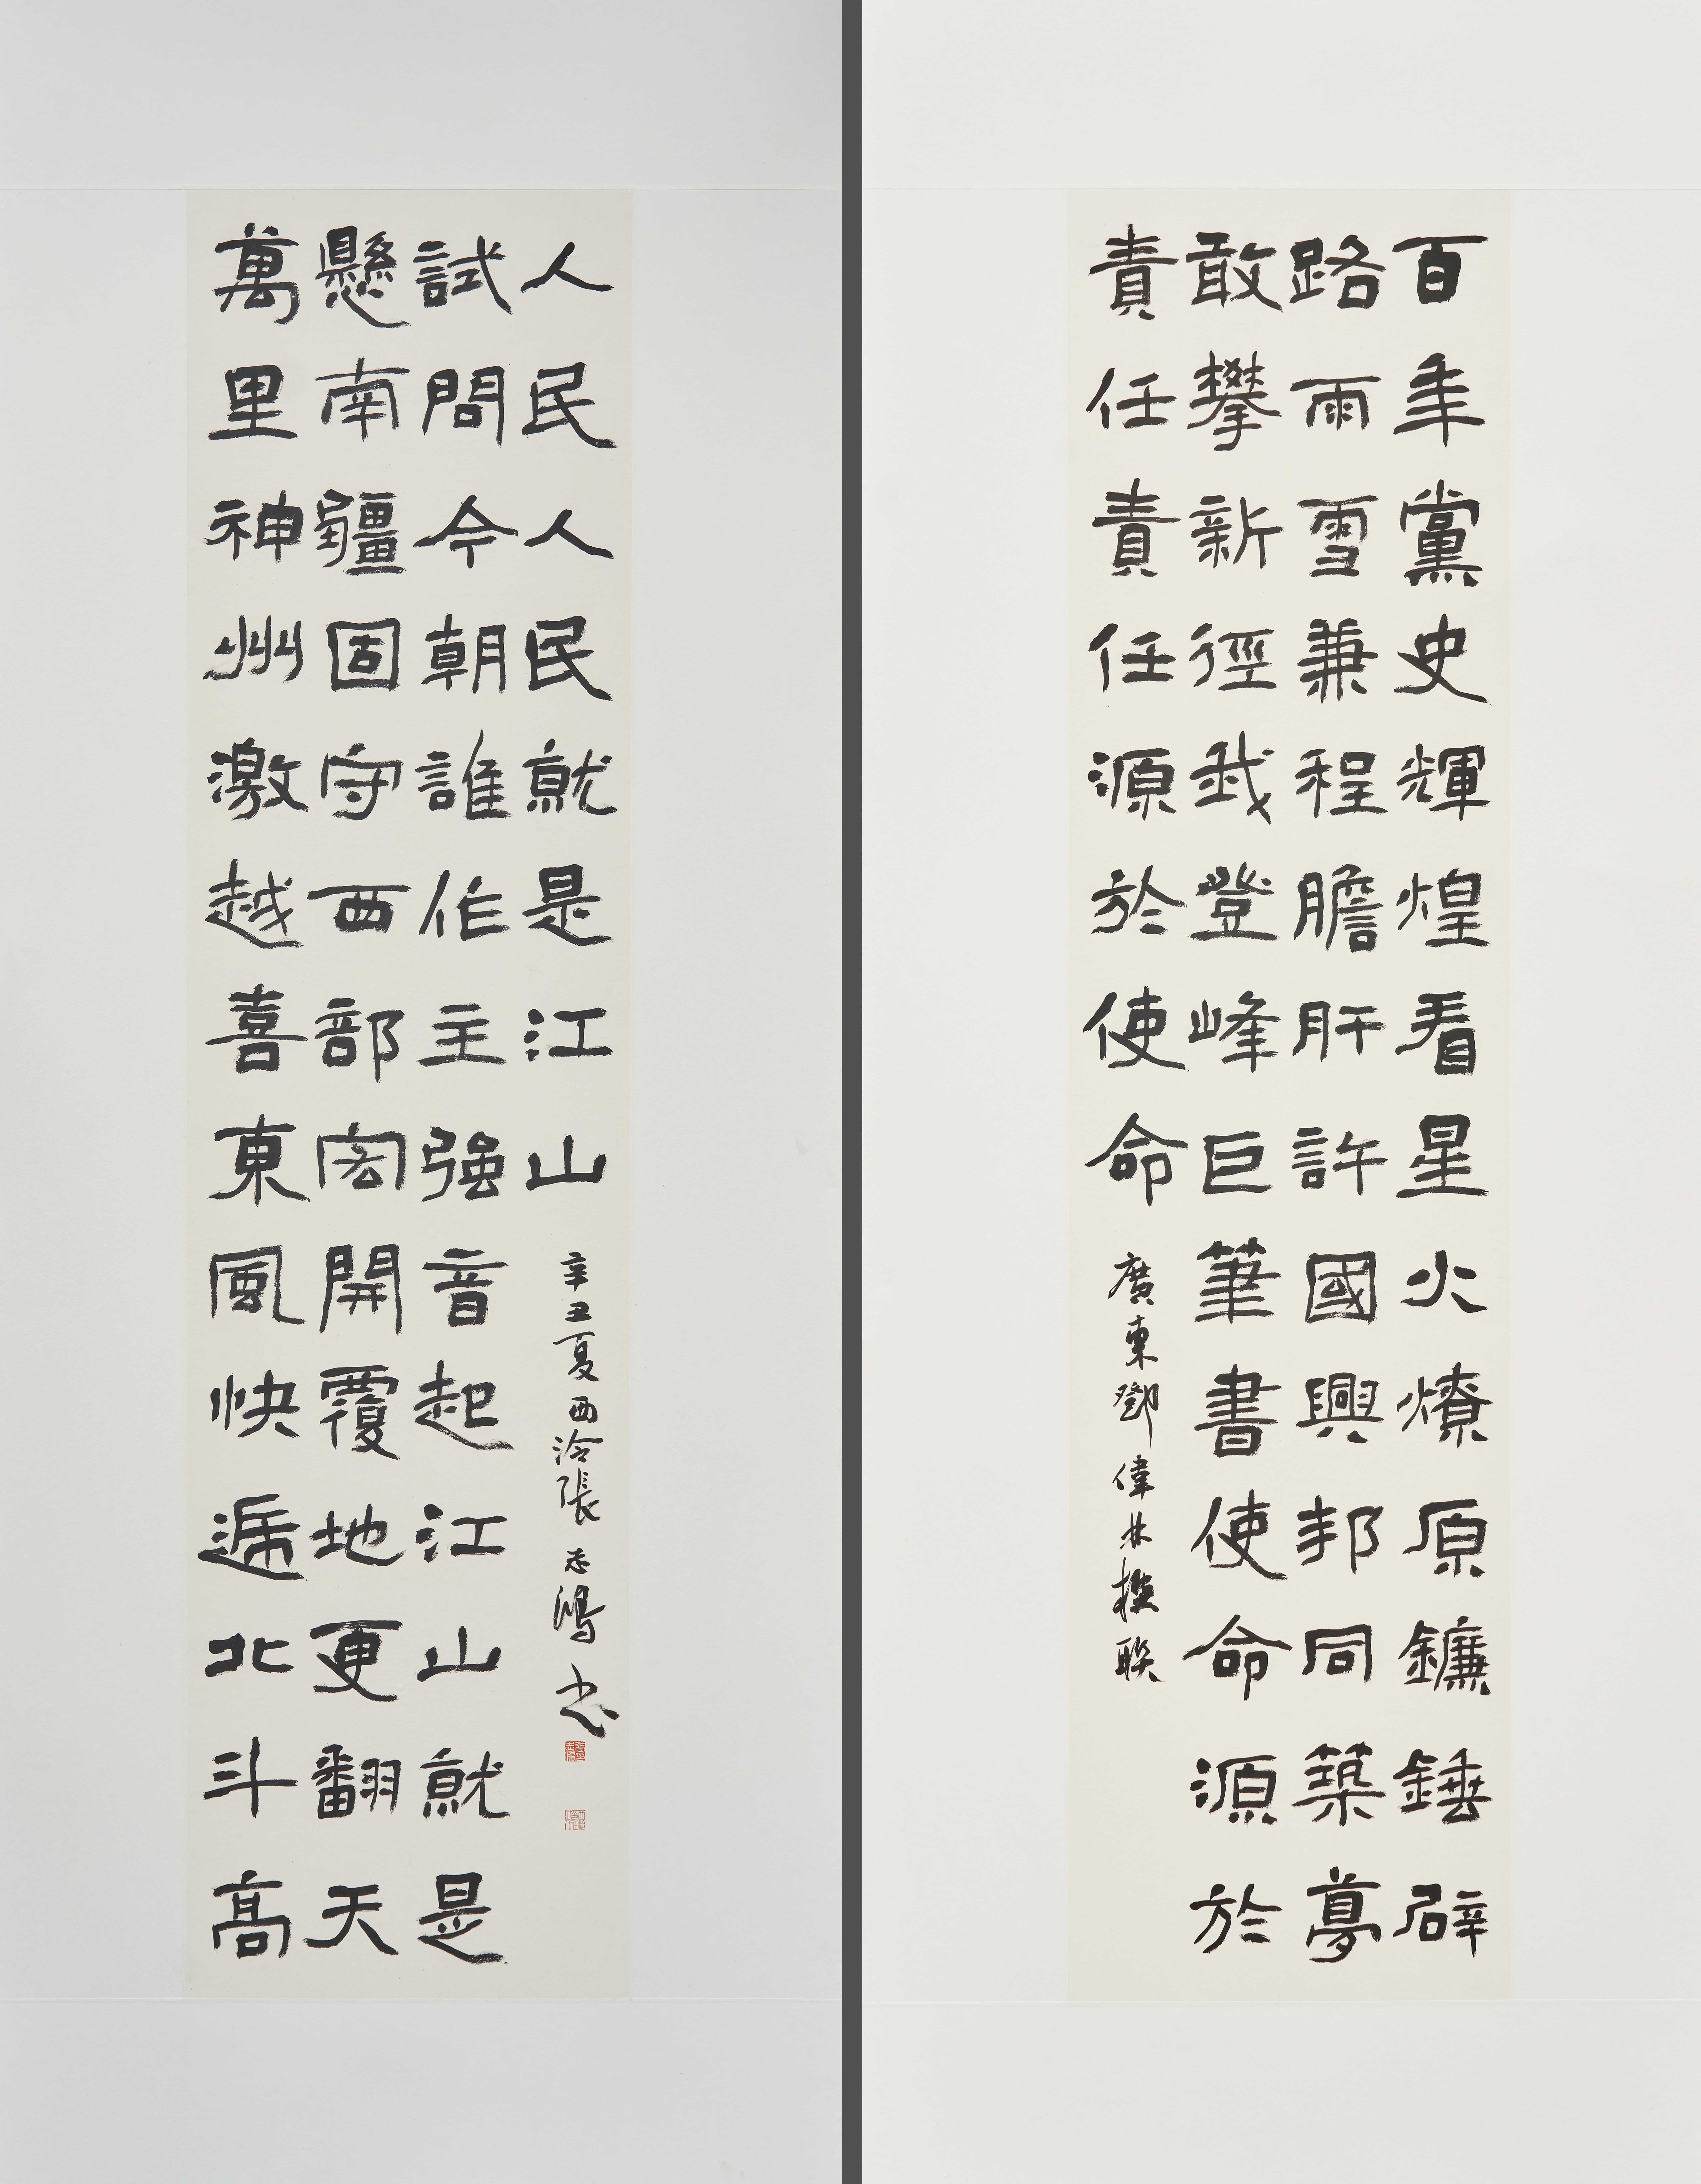 百年黨史輝煌看星火燎原鐮錘辟
路雨雪兼程膽肝許國興邦同築夢
敢攀新徑我登峰巨筆書使命源於
責任責任源於使命
廣東鄧偉林撰聯
萬里神州激越喜東風快遞北斗高
懸南疆固守西部宏開覆地更翻天
試問今朝誰作主強音起江山就是
人民人民就是江山
辛丑夏西泠張志鴻書